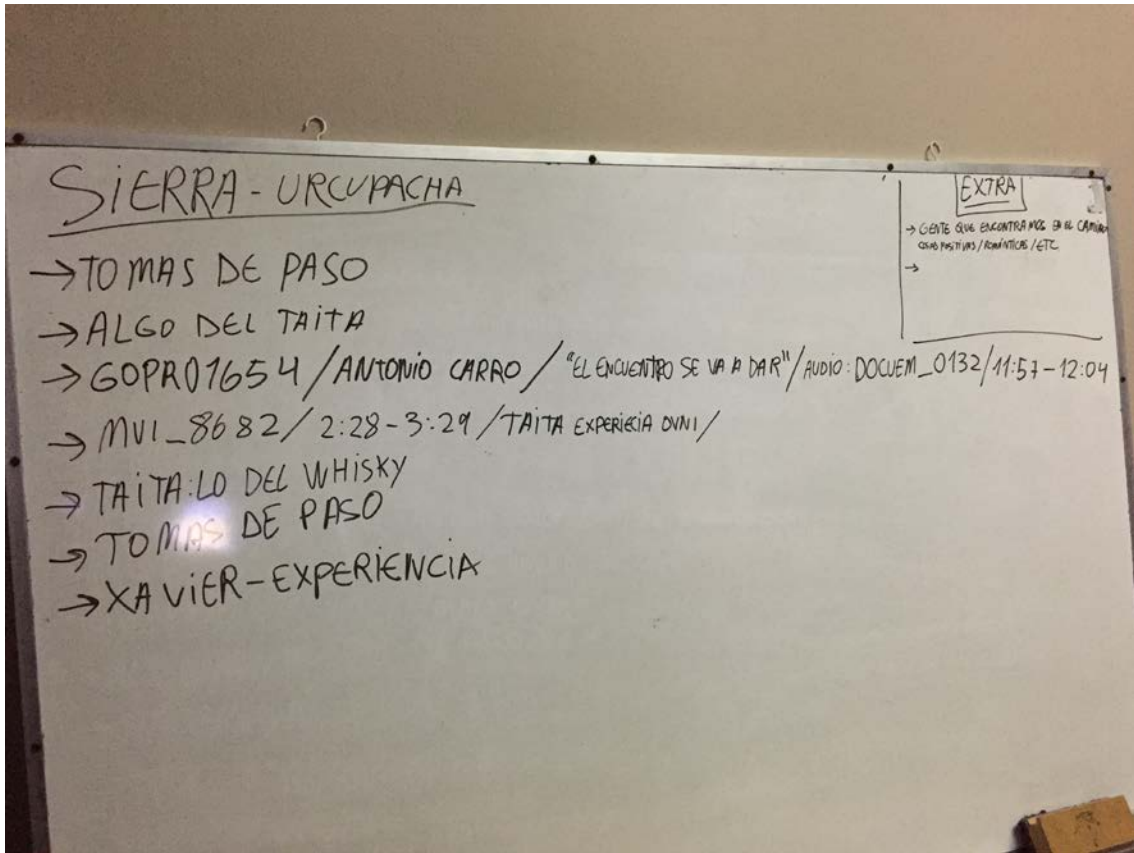 SIERRA - URCUPACHA
→ TOMAS DE PASO
→ ALGO DEL TAITA
→ GOPRO1654 / ANTONIO CARRO / "EL ENCUENTRO SE VA A DAR" / AUDIO: DOCUEM_0132 / 11:57-12:04
→ MVI_8682 / 2:28-3:29 / TAITA EXPERIECIA OVNI /
→ TAITA: LO DEL WHISKY
→ TOMAS DE PASO
→ XAVIER-EXPERIENCIA
EXTRA
→ GENTE QUE ENCONTRAMOS EN EL CAMINO
COSAS POSITIVAS / ROMÁNTICAS / ETC
→